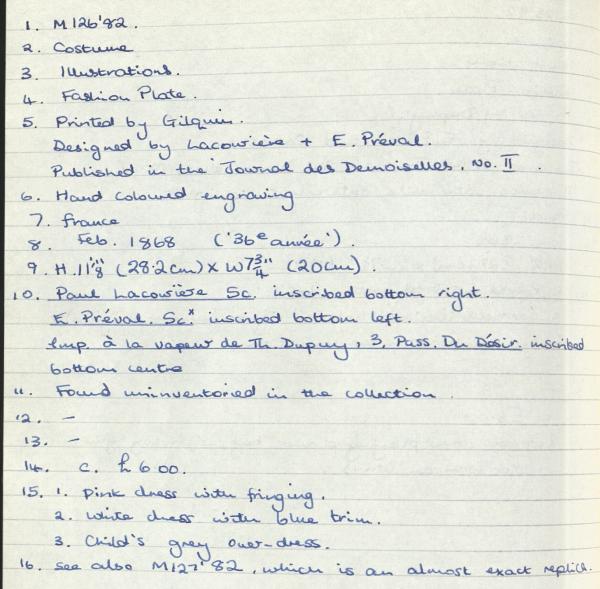 1. M126'82.
2. Costume
3. Illustrations.
4. Fashion Plate.
5. Printed by Gilquin.
Designed by Lacourière + E. Préval.
Published in the 'Journal des Demoiselles, No. II.
6. Hand coloured engraving
7. France
8. Feb. 1868 ('36e année').
9. H. 11 1/8" (28.2cm) x W 7 3/4" (20cm).
10. Paul Lacourière Sc. inscribed bottom right.
E. Préval. Sc.x inscribed bottom left.
Imp. à la vapeur de Th. Dupuy, 3, Pass. Du Désir. inscribed
bottom centre
11. Found uninventoried in the collection.
12. –
13. –
14. c. £6.00.
15. 1. Pink dress with fringing.
2. White dress with blue trim.
3. Child's grey over-dress.
16. See also M127'82, which is an almost exact replica.